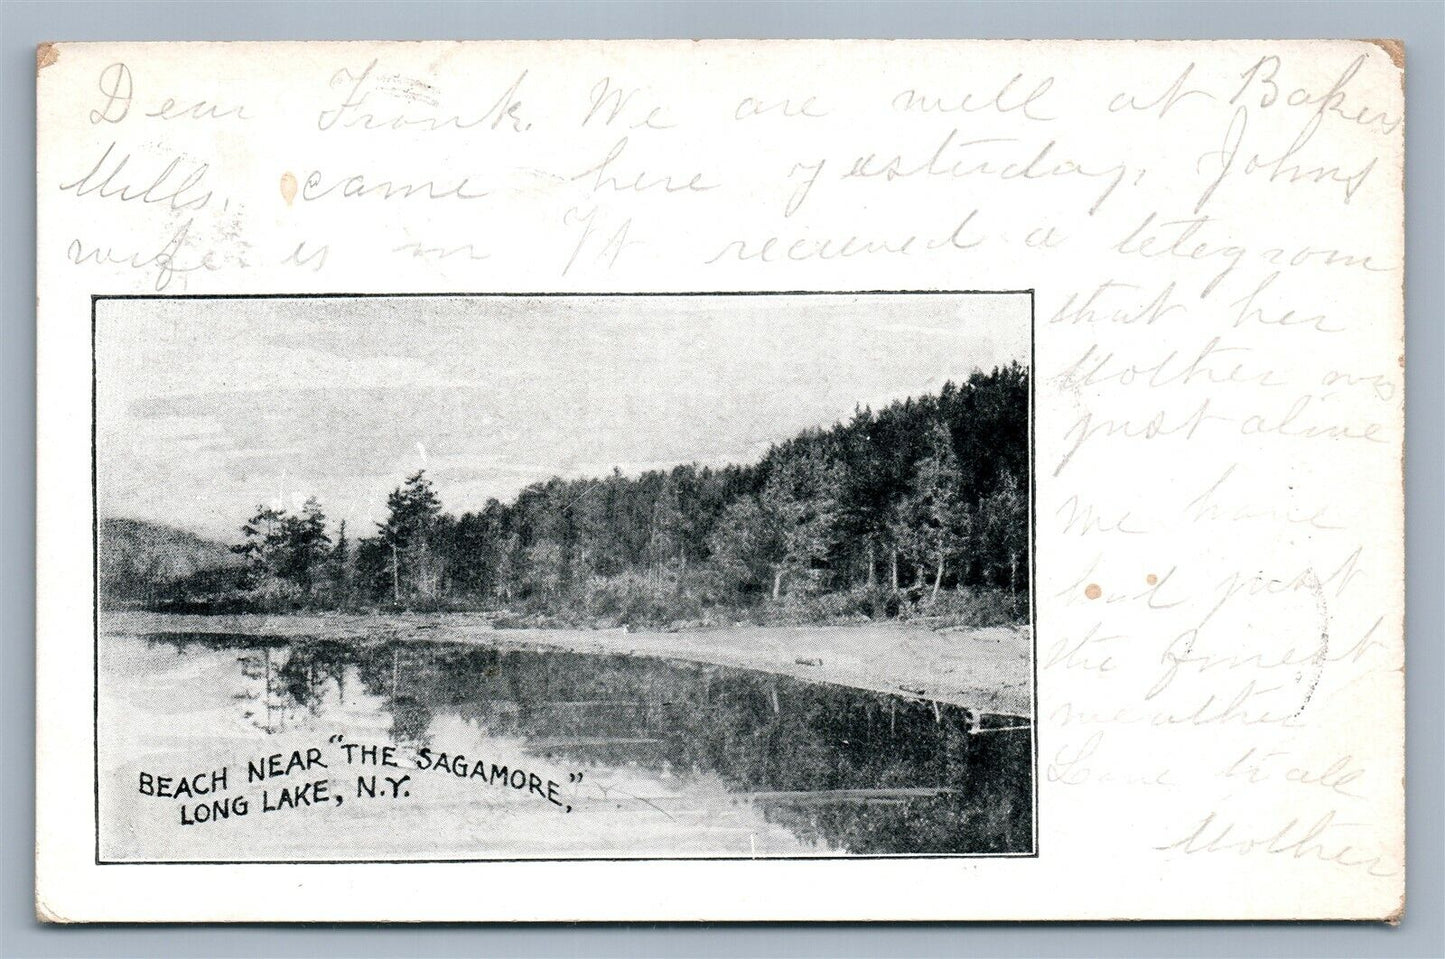 Dear Frank. We are well at Bakers
Mills, came here yesterday, Johns
wife is in Vt recieved a telegram
that her
Mother was
just alive
we have
had just
the finest
weather
Love to all
Mother
BEACH NEAR "THE SAGAMORE,"
LONG LAKE, N.Y.